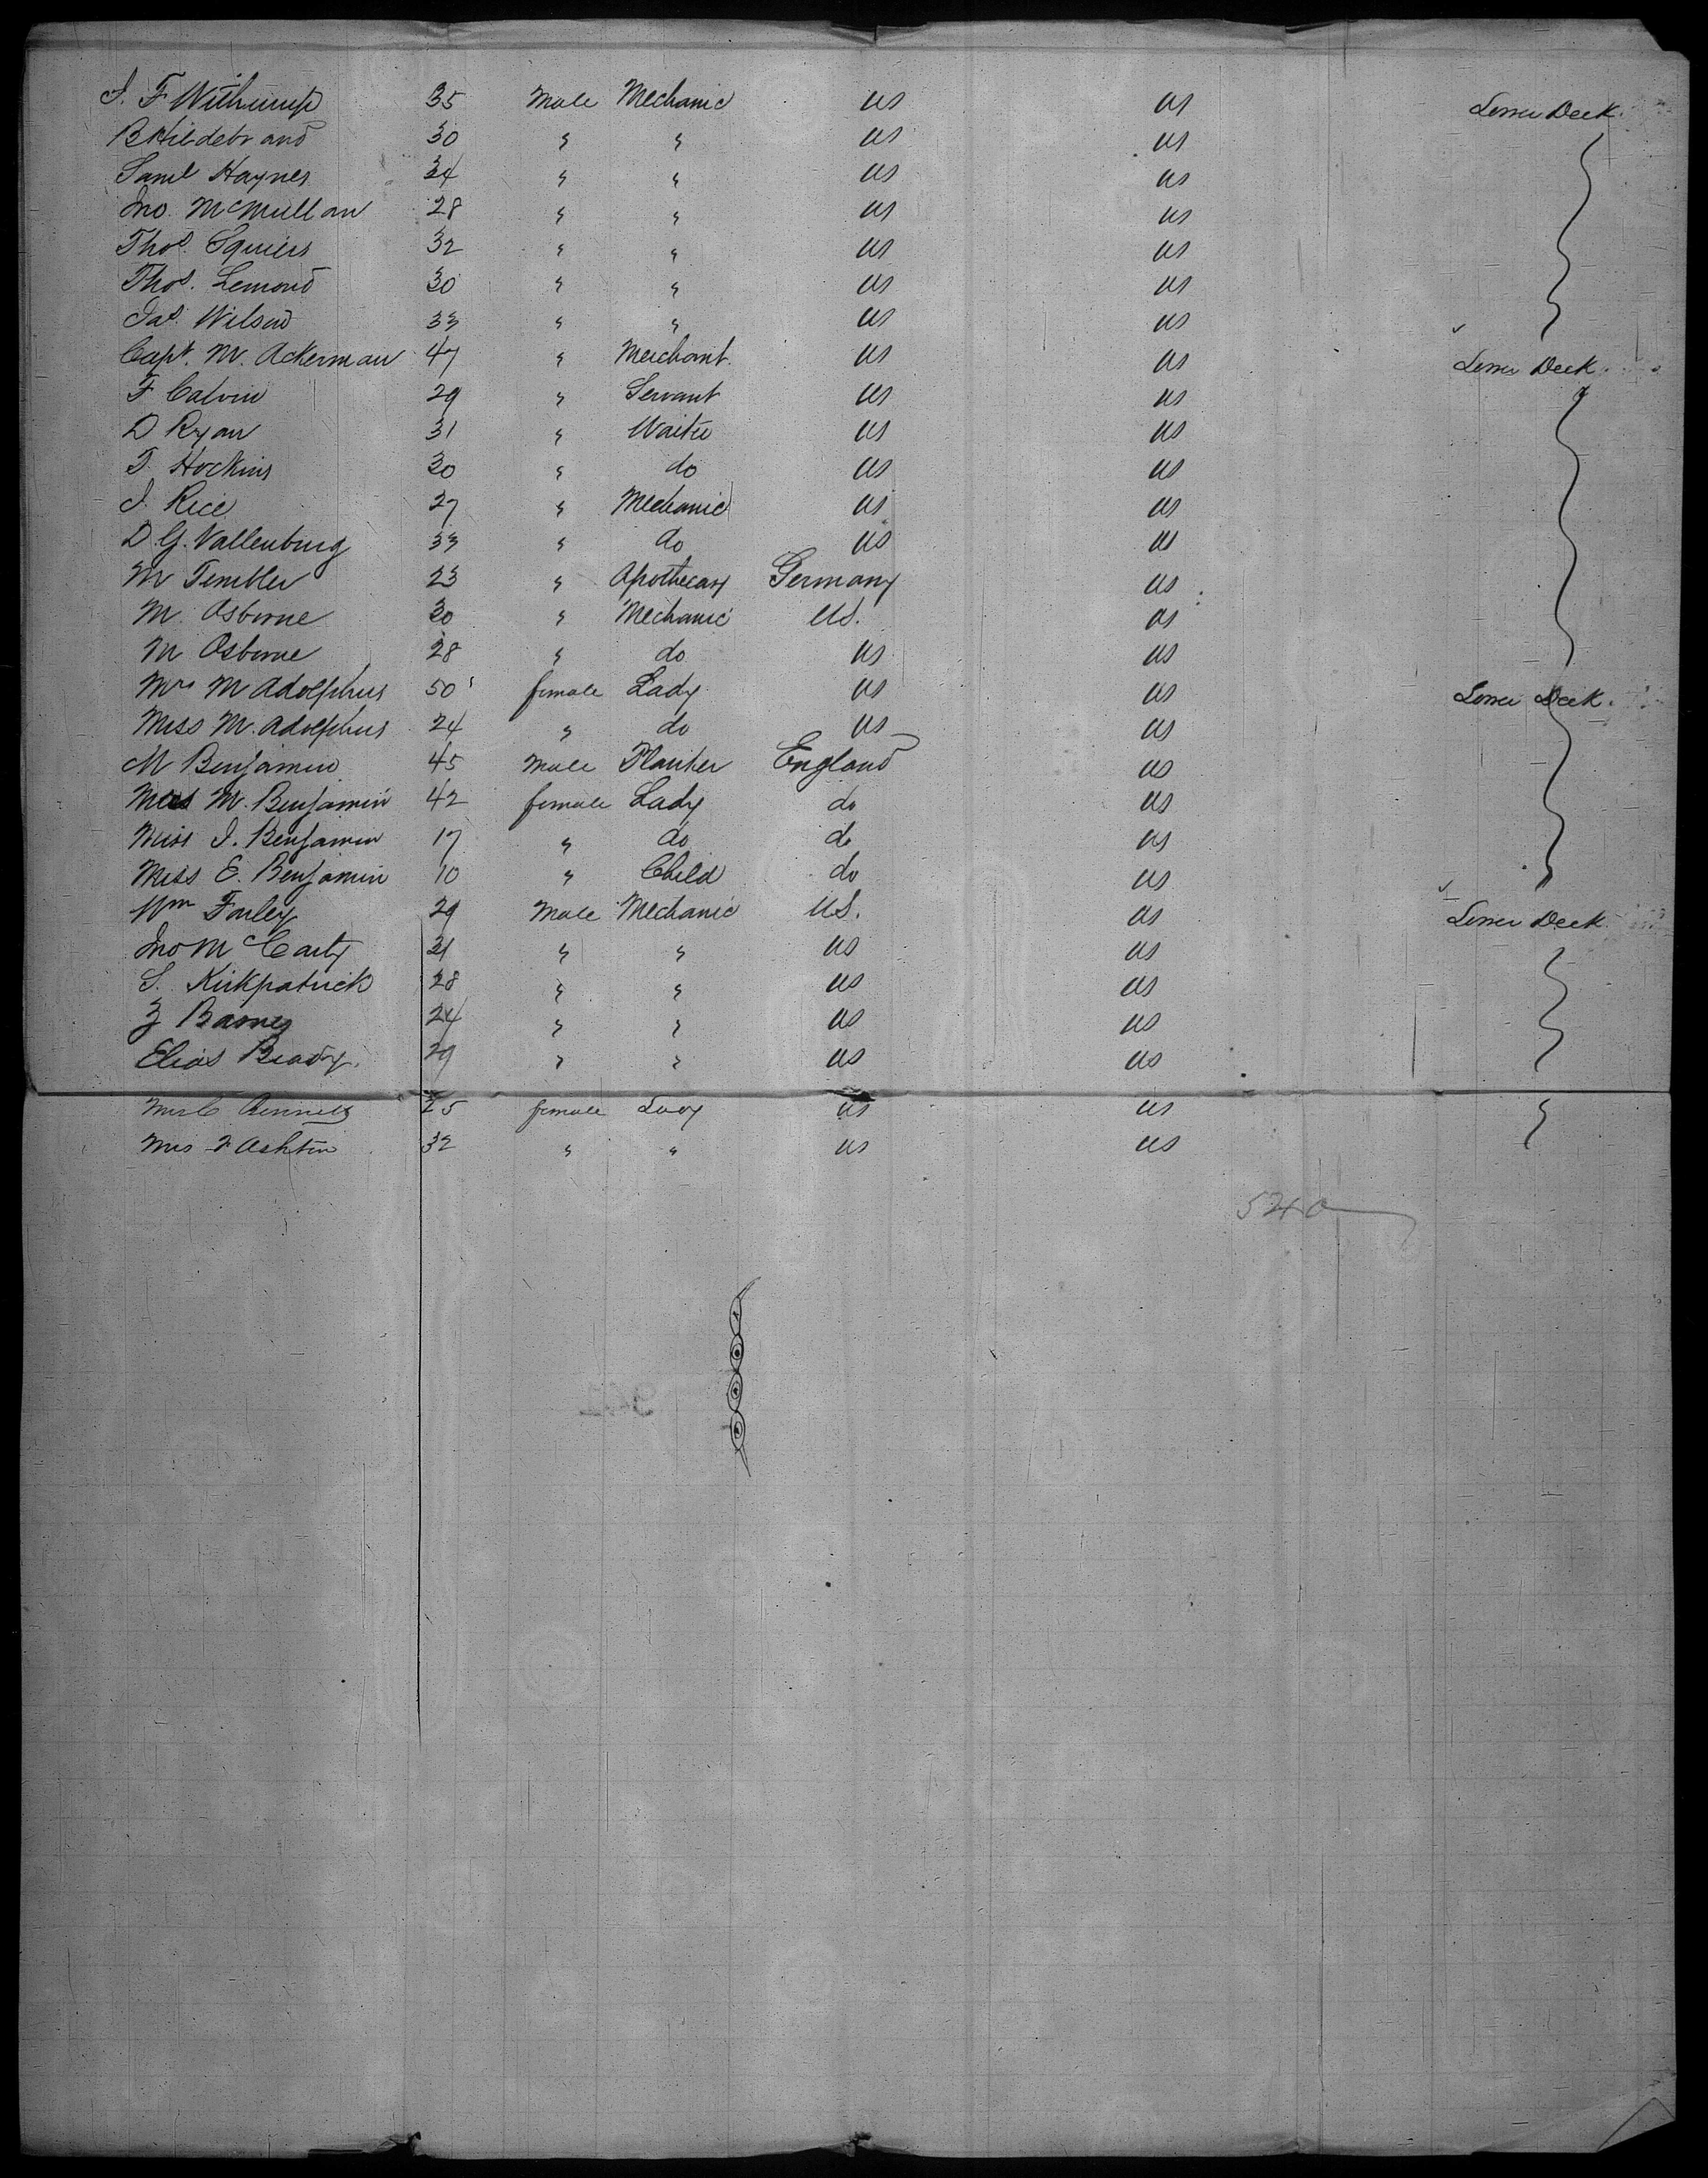 J. F Withrup 35 Male Mechanic US US Lower Deck.
B Hildebrand 30 " " US US
Saml Haynes 34 " " US US
Jno. McMullan 28 " " US US
Thos. Squiers 32 " " US US
Thos. Lemond 30 " " US US
Jas. Wilson 33 " " US US
Capt. M. Ackerman 47 " Merchant. US US Lower Deck
F Calvin 29 " Servant US US
D Ryan 31 " Waiter US US
T. Hockins 30 " do US US
J. Rice 27 " Mechanic US US
D. G. Vallenburg 33 " do US US
M Tembler 23 " Apothecary Germany US
M. Osborne 30 " Mechanic US. US
M Osborne 28 " do US US
Mrs M Adolphus 50 female Lady US US Lower Deck.
Miss M. Adolphus 24 " do US US
M Benjamin 45 Male Planter England US
M. Benjamin 42 female Lady do US
Miss J. Benjamin 17 " do do US
Miss E. Benjamin 10 " Child do US
Wm Farley 29 Male Mechanic US. US Lower Deck
Jno McCarty 31 " " US US
S. Kirkpatrick 28 " " US US
Z Barney 24 " " US US
Elias Brady. 29 " " US US
Mrs C 25 female Lady US US
Mrs F Ashton 32 " " US US
540